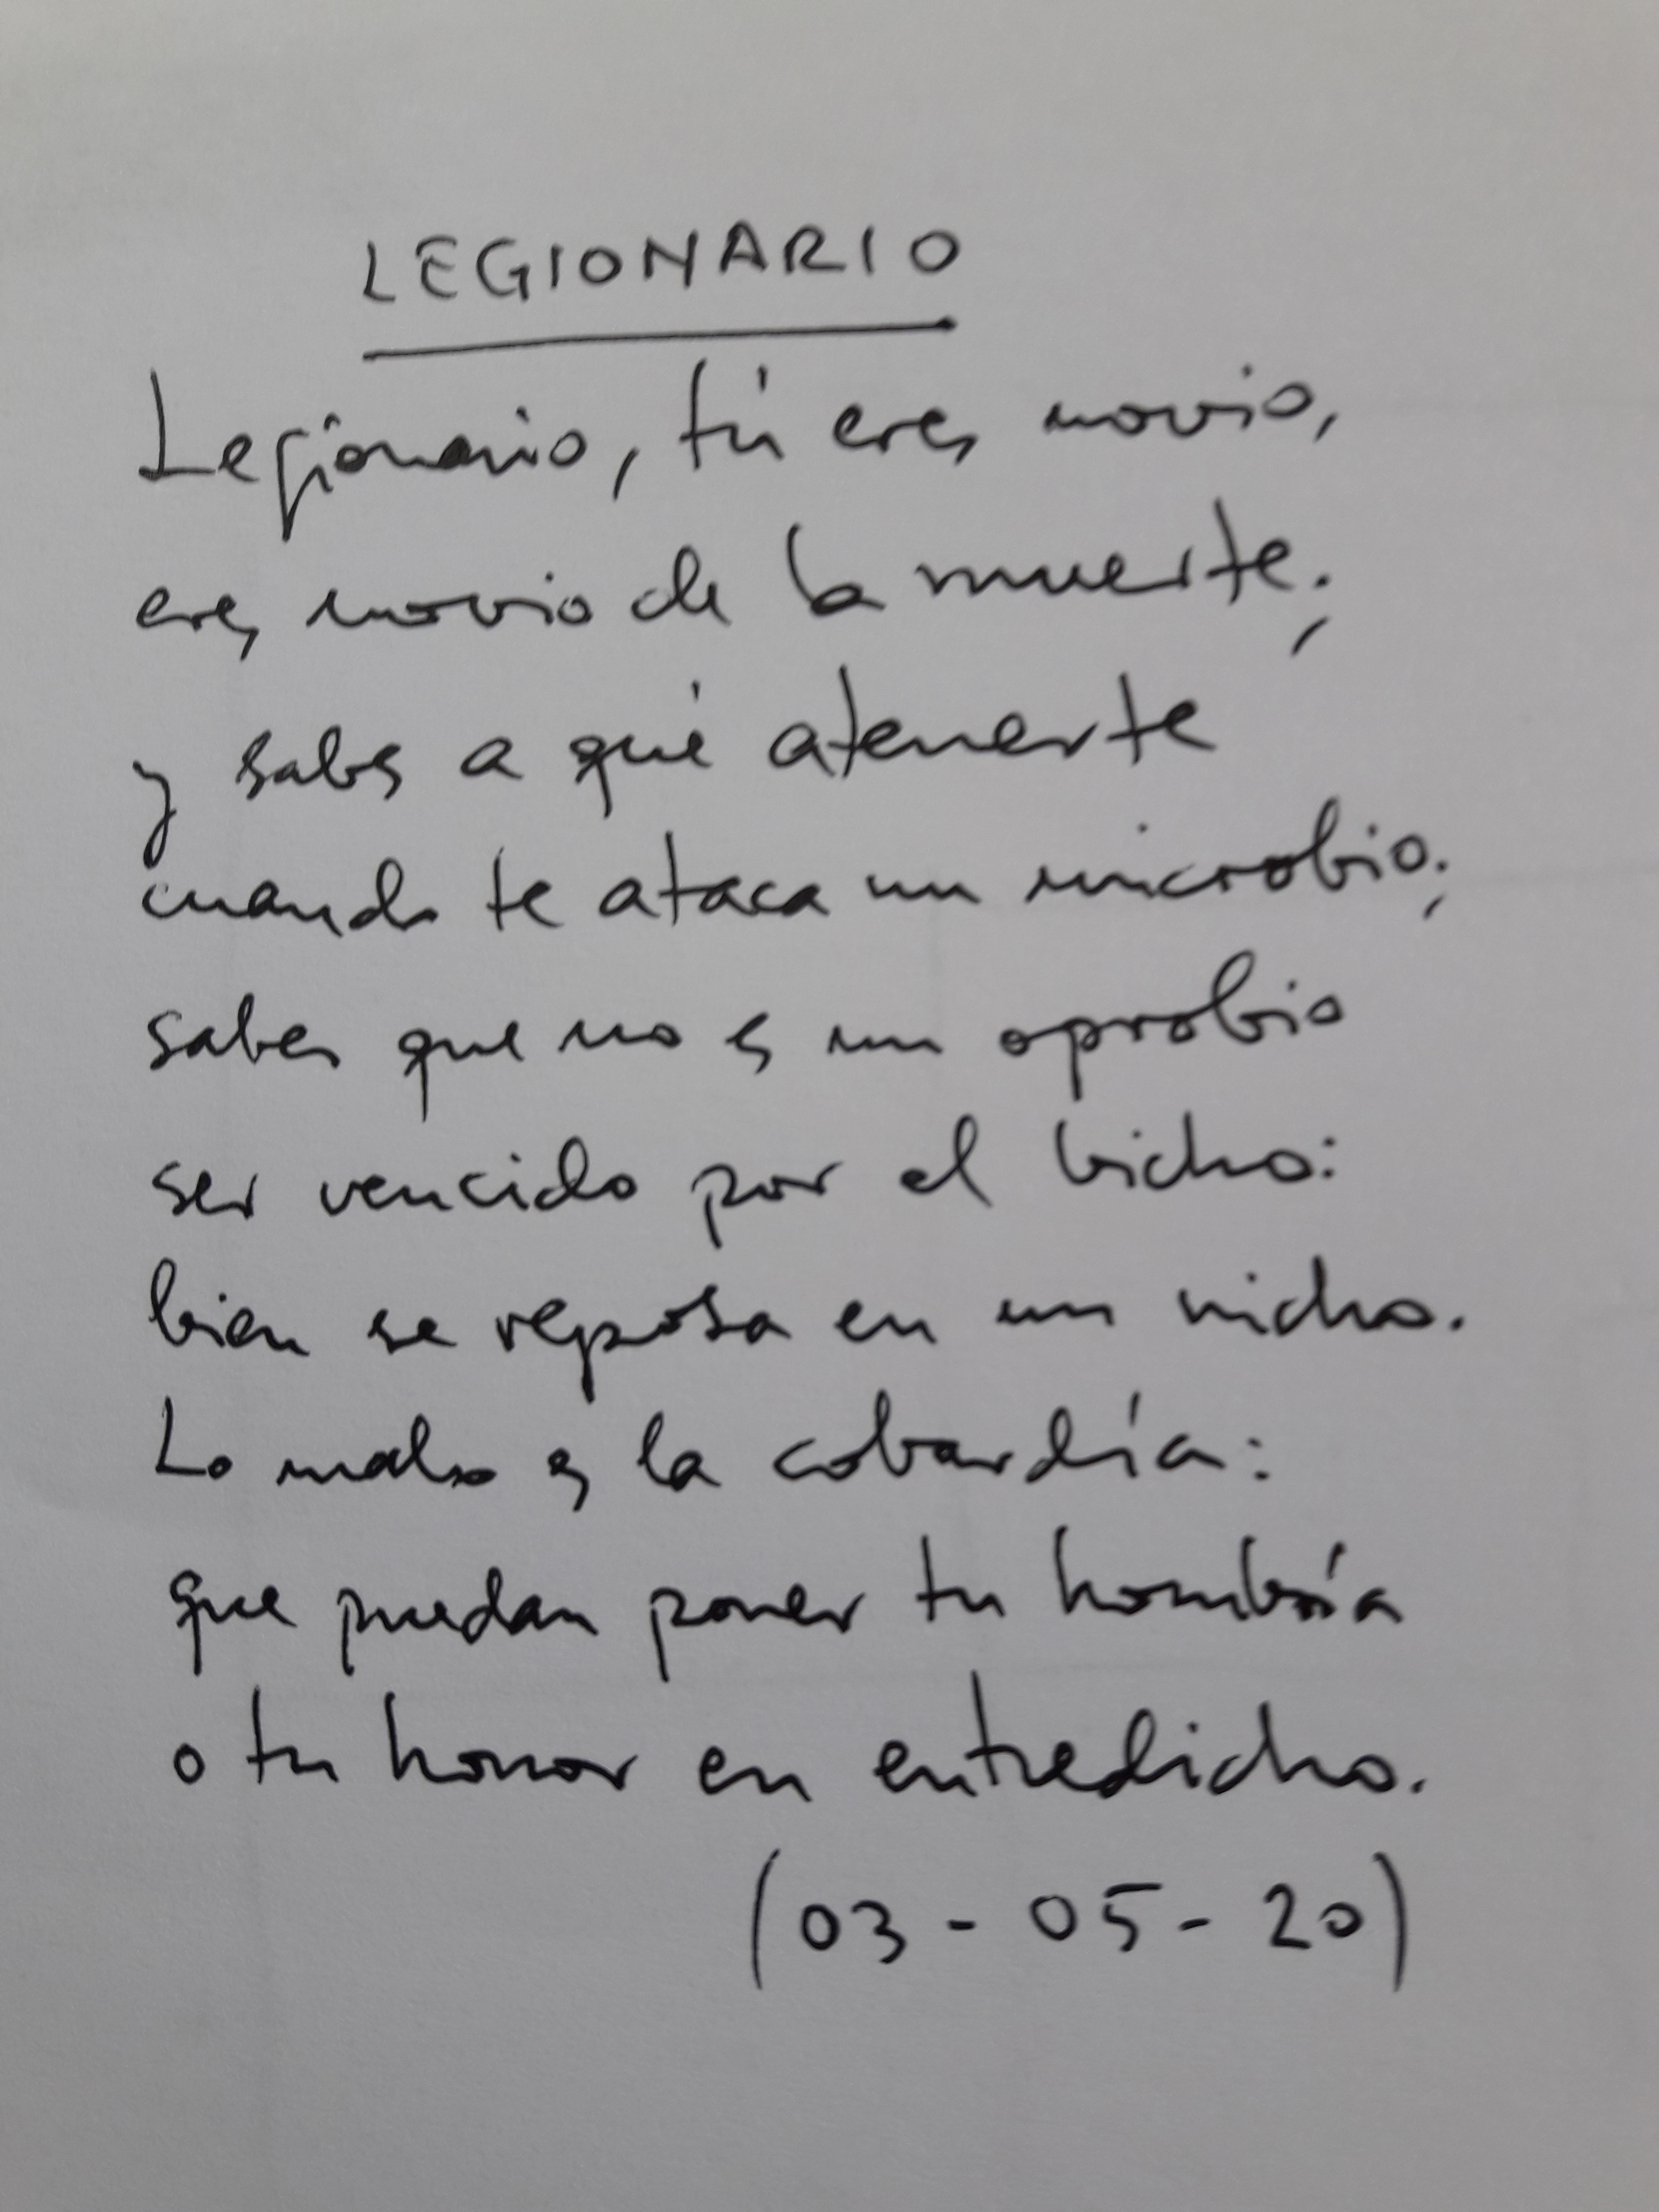 LEGIONARIO
Legionario, tú eres novio,
eres novio de la muerte;
y sabes a qué atenerte
cuando te ataca un microbio;
sabes que no es un oprobio
ser vencido por el bicho:
bien se reposa en un nicho.
Lo malo es la cobardía:
que puedan poner tu hombría
o tu honor en entredicho.
(03-05-20)